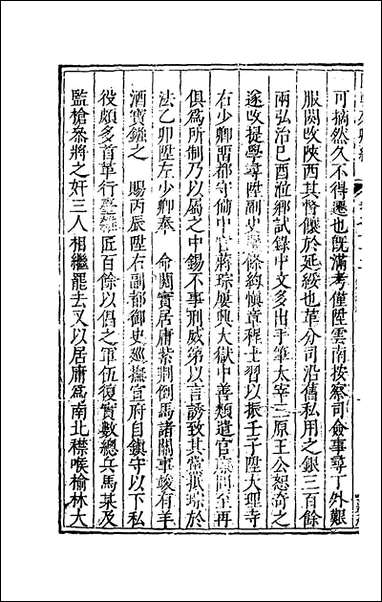 可摘然久不得遷也旣滿考僅陞雲南按察司僉事尋丁外艱
服闋改陜西其督儲於延綏也革分司沿舊私用之銀三百餘
兩弘治己酉涖鄉試錄中文多出手筆太宰三原王公恕奇之
遂改提學尋陞副史條約愼章程士習以振壬子陞大理寺
右少卿留都守備中官蔣琮屢興大獄中善類遣官問至再
俱爲所制乃以屬之中錫不事刑威第以言誘致其黨抵琮於
法乙卯陞左少卿奉　命閱實居庸紫荆倒馬諸關事竣有羊
酒寶鏹之　賜丙辰陞右副都御史廵撫宣府自鎭守以下私
役頗多首革行匠百餘以倡之軍伍復實數總兵馬某及
監槍叅將之奸三人相繼罷去又以居庸爲南北襟喉榆林大